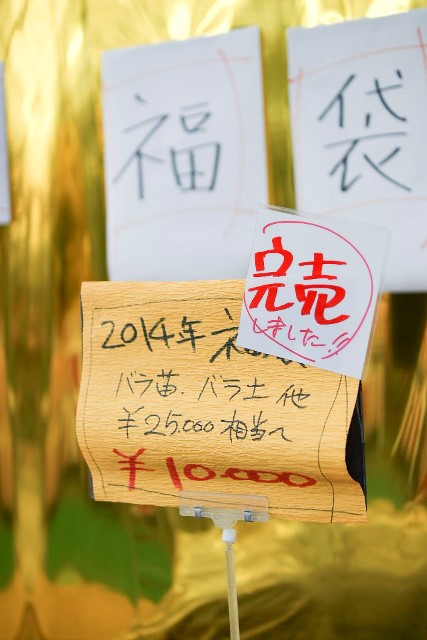 福
袋
完売
しました!!
2014年 福
バラ苗. バラ土 他
¥25.000 相当〜
¥10.000